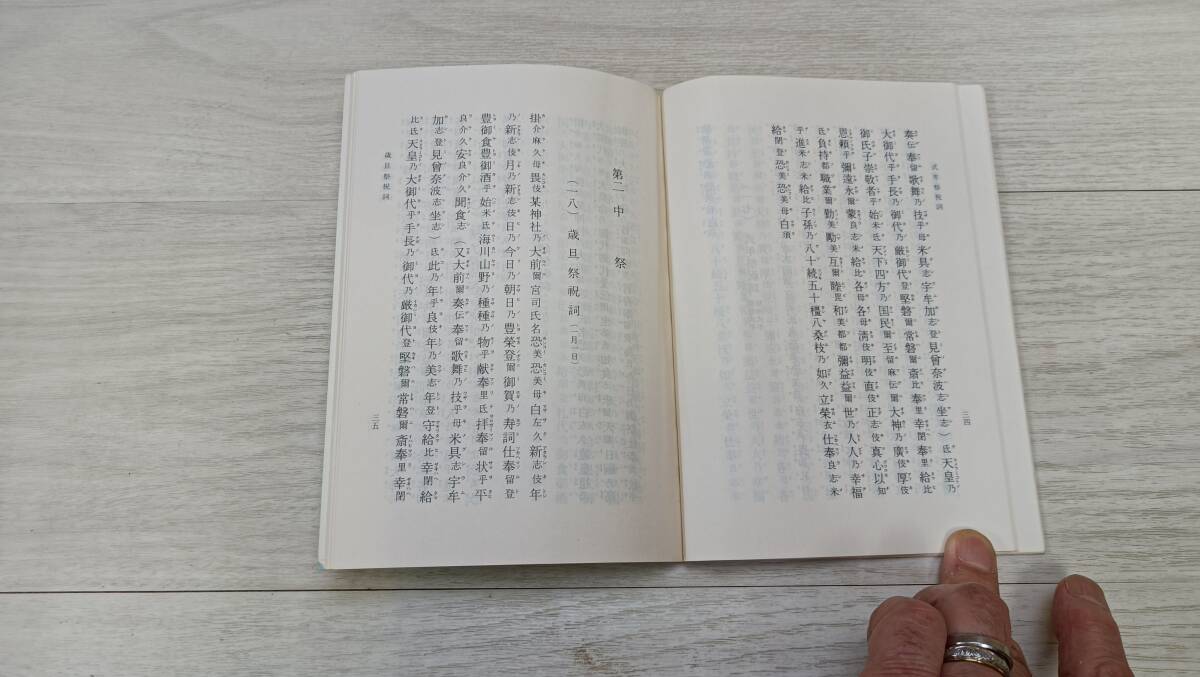 式年祭祝詞
三四
奏伝奉留歌舞乃技乎母米具志宇牟加志登見曾奈波志坐志)氐天皇乃
大御代乎手長乃御代乃厳御代登堅磐爾常磐爾斎比奉里幸閉奉里給比
御氏子崇敬者乎始米氐天下四方乃国民爾至留麻伝爾大神乃廣伎厚伎
恩頼乎彌遠永爾蒙良志米給比各母各母清伎明伎直伎正志伎真心以知
氐負持都職業爾勤美勵美互爾睦毘和美都都彌益益爾世乃人人乃幸福
乎進米志米給比子孫乃八十続五十橿八桑枝乃如久立栄衣仕奉良志米
給閉登恐美恐美母白須
第二 中 祭
(一八) 歳旦祭祝詞 (一月一日)
掛介麻久母畏伎某神社乃大前爾宮司氏名恐美恐美母白左久新志伎年
乃新志伎月乃新志伎日乃今日乃朝日乃豊栄登爾御賀乃寿詞仕奉留登
豊御食豊御酒乎始米氐海川山野乃種種乃物乎献奉里氐拝奉留状乎平
良介久安良介久聞食志(又大前爾奏伝奉留歌舞乃技乎母米具志宇牟
加志登見曾奈波志坐志)氐此乃年乎良伎年乃美志年登守給比幸閉給
比氐天皇乃大御代乎手長乃御代乃厳御代登堅磐爾常磐爾斎奉里幸閉
歳旦祭祝詞
三五